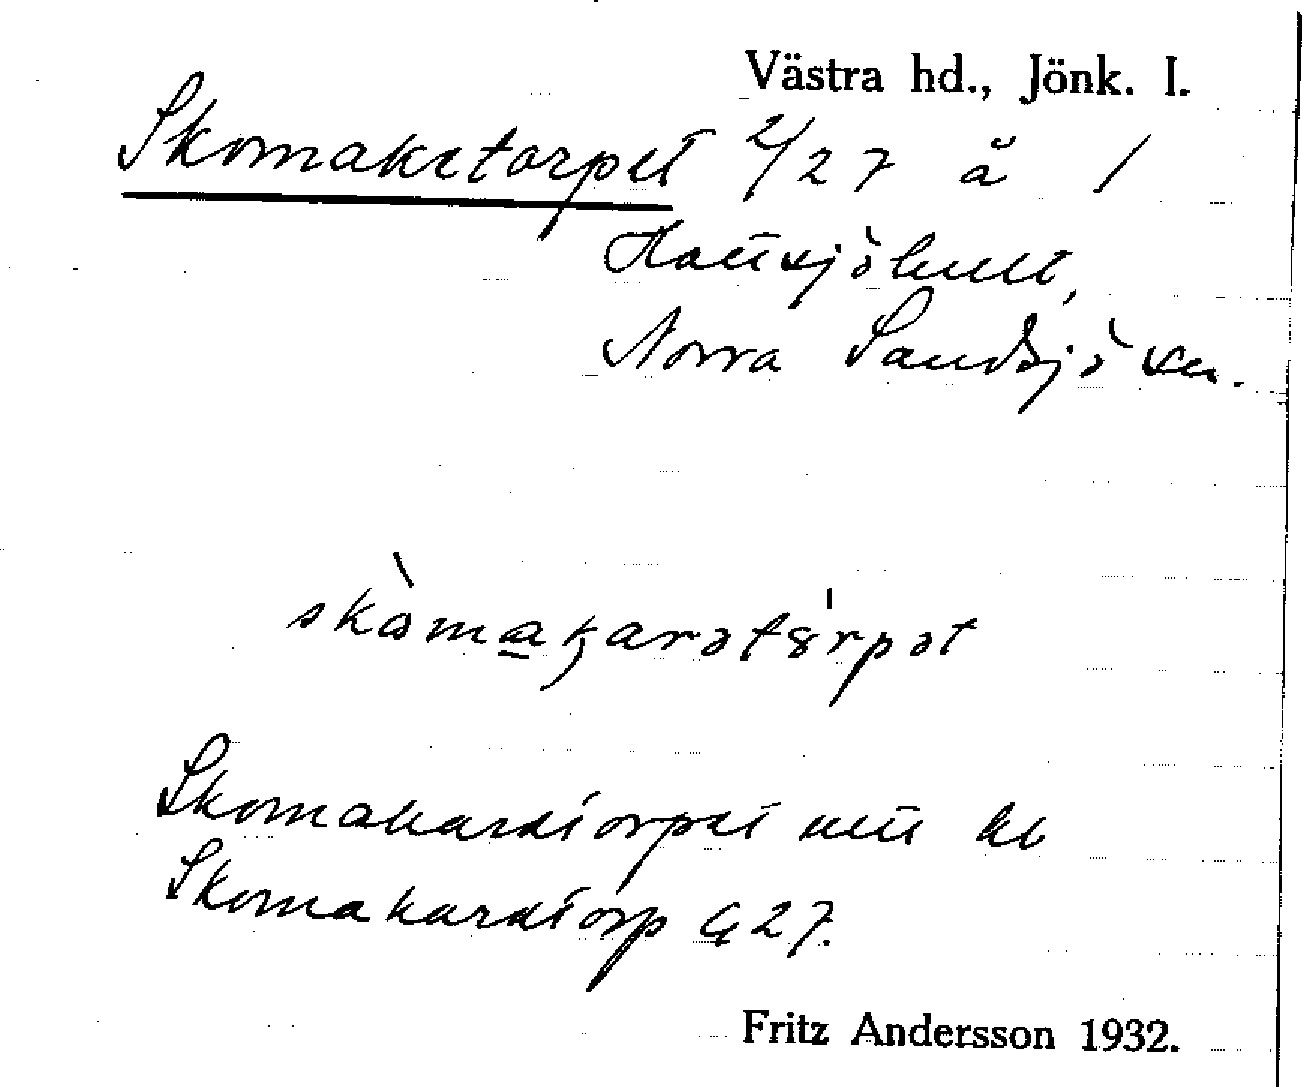 Västra hd., Jönk. l.
Skomaketorpet 2/27 å 1
Hattsjöhult,
Norra Sandsjö sn.
skò̱ma̱karətȣ́rpət
Skomakaretorpet utt hb
Skomakaretorp G 27.
Fritz Andersson 1932.